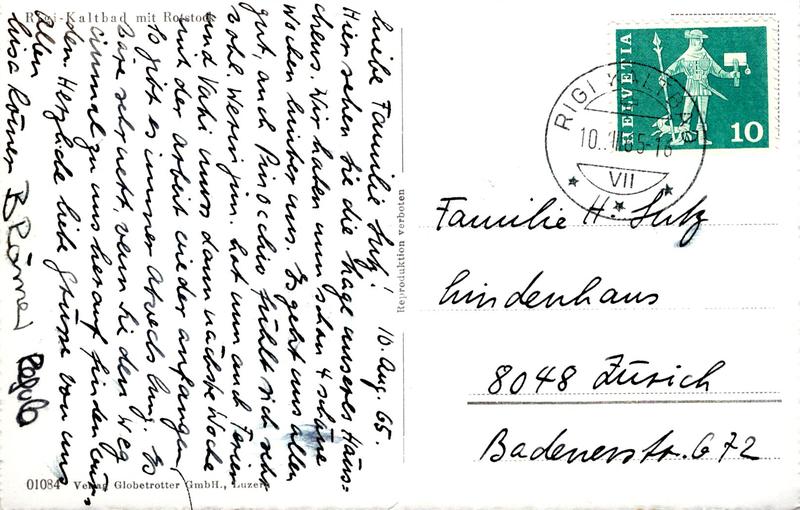 Rigi-Kaltbad mit Rotstock
Liebe Familie Sutz! 10. Aug. 65.
Hier sehen Sie die Lage unseres Häus=
chens. Wir haben nun schon 4 schöne
Wochen hinter uns. Es geht uns allen
gut, auch Pinocchio fühlt sich sehr
wohl. hat nun auch Ferien
und Vati muss dann nächste Woche
mit der Arbeit wieder anfangen,
so gibt es immer Abwechslung. Es
wäre sehr nett, wenn Sie den Weg
einmal zu uns herauf finden wür=
den. Herzliche liebe Grüsse von uns
allen
Lisa Römer B Römer Regula
01084 Verlag Globetrotter GmbH., Luzern
Reproduktion verboten
HELVETIA
10
RIGI KALTBAD
VII
Familie H. Sutz
Lindenhaus
8048 Zürich
Badenerstr. 672